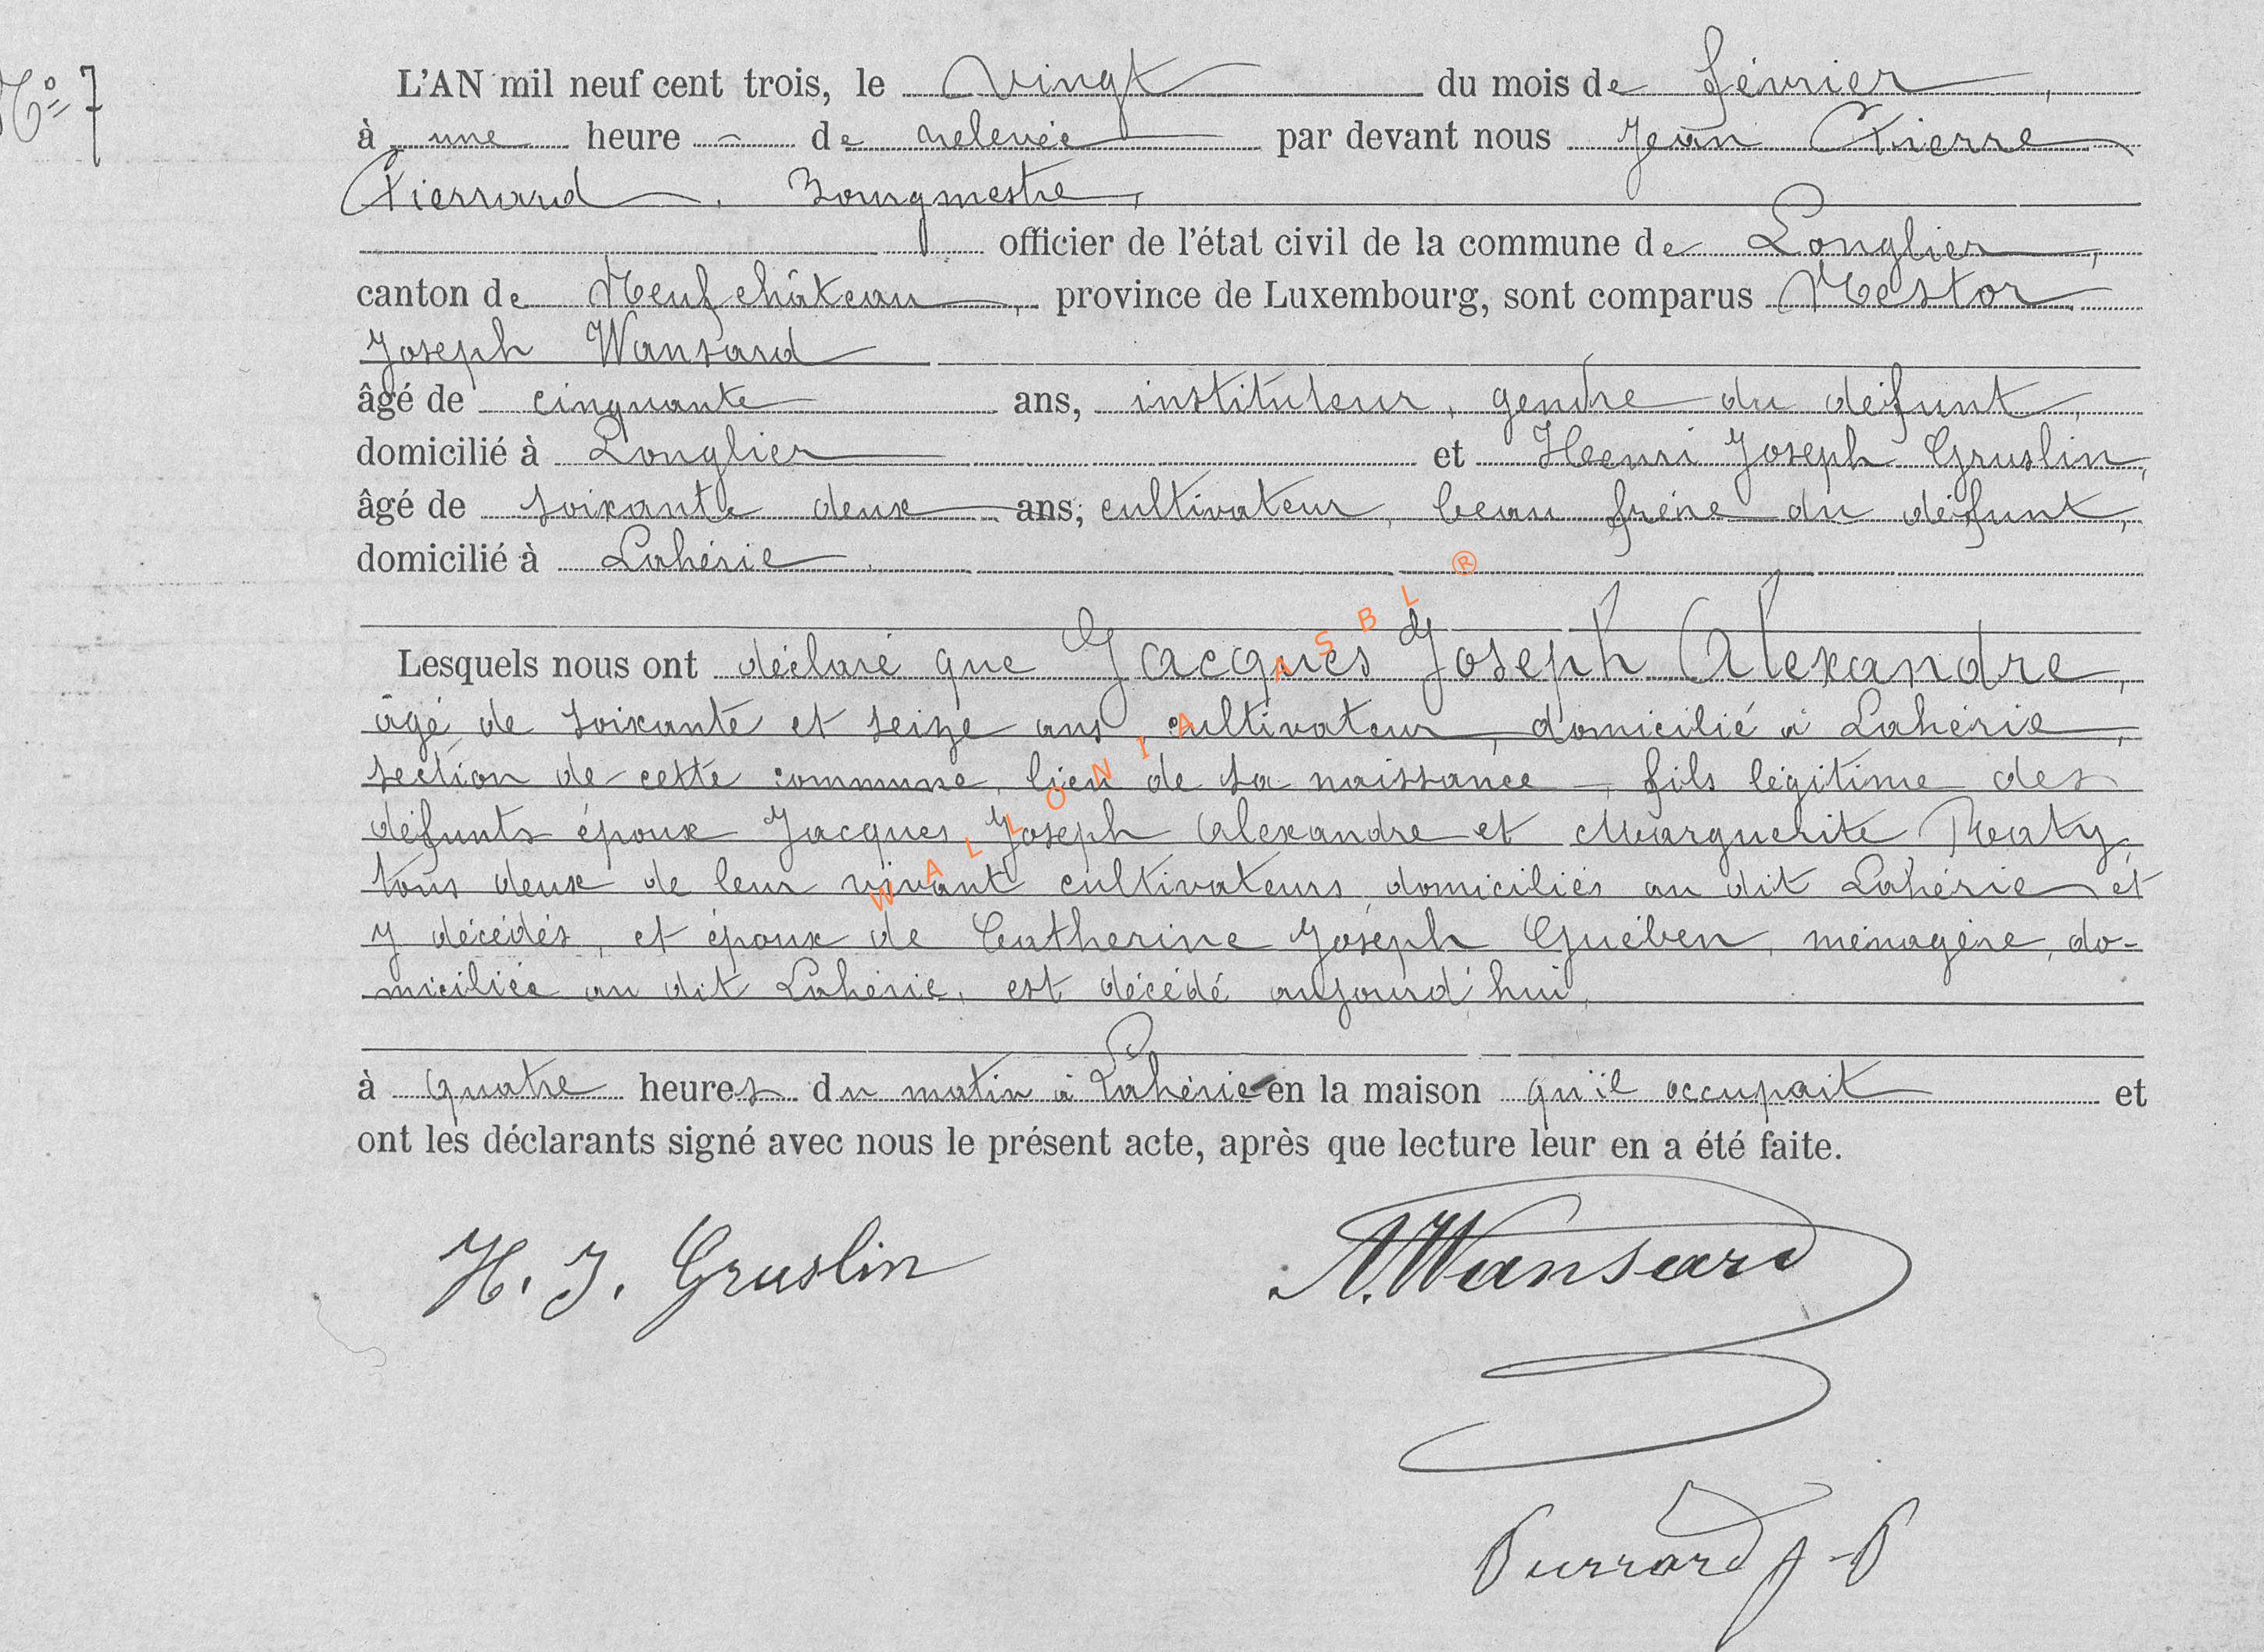 N° 7
L'AN mil neuf cent trois, le vingt du mois de février,
à une heure de relevée par devant nous Jean Pierre
Pierrard, Bourgmestre,
officier de l'état civil de la commune de Longlier,
canton de Neufchâteau, province de Luxembourg, sont comparus Nestor
Joseph Wansard
âgé de cinquante ans, instituteur, gendre du défunt,
domicilié à Longlier et Henri Joseph Gruslin,
âgé de soixante deux ans, cultivateur, beau frère du défunt,
domicilié à Lahérie.
Lesquels nous ont déclaré que Jacques Joseph Alexandre,
âgé de soixante et seize ans, cultivateur, domicilié à Lahérie,
section de cette commune, lieu de sa naissance, fils légitime des
défunts époux Jacques Joseph Alexandre et Marguerite
tous deux de leur vivant cultivateurs domiciliés au dit Lahérie et
y décédés, et époux de Catherine Joseph Guében, ménagère, do-
miciliée au dit Lahérie, est décédé aujourd'hui,
à quatre heures du matin à Lahérie en la maison qu'il occupait et
ont les déclarants signé avec nous le présent acte, après que lecture leur en a été faite.
H. J. Gruslin N. Wansard
Pierrard J-P
WALLONIA ASBL ®